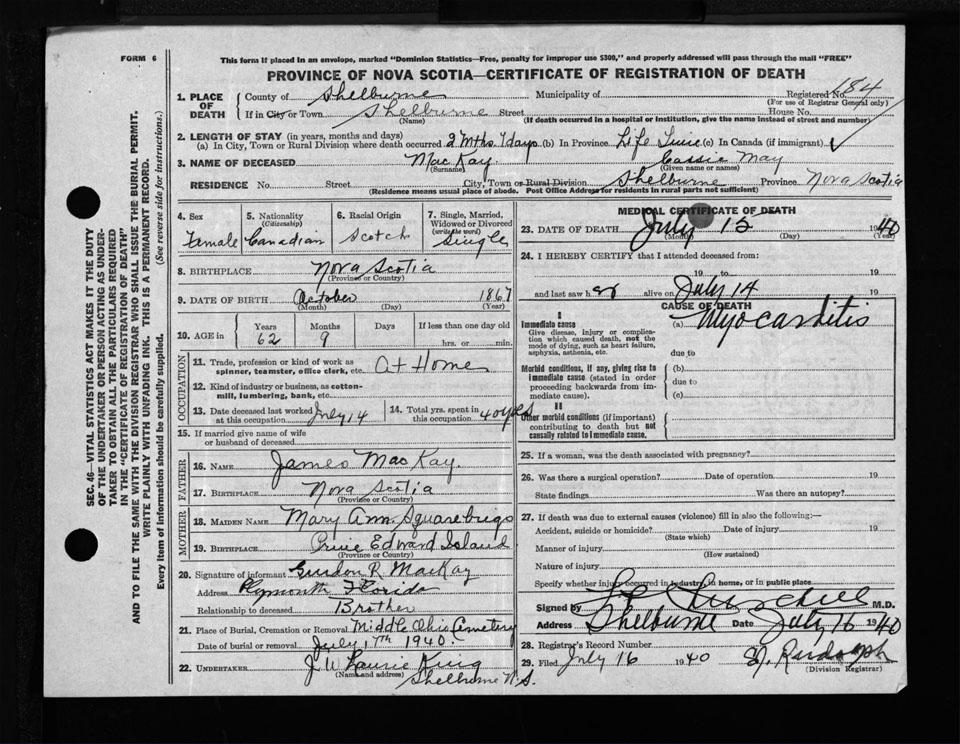 FORM 6
This form if placed in an envelope, marked "Dominion Statistics—Free, penalty for improper use $300," and properly addressed will pass through the mail "FREE"
PROVINCE OF NOVA SCOTIA—CERTIFICATE OF REGISTRATION OF DEATH
184
1. PLACE OF DEATH County of Shelburne Municipality of Registered No.
(For use of Registrar General only)
If in City or Town Shelburne Street House No.
(Name) (If death occurred in a hospital or institution, give the name instead of street and number)
2. LENGTH OF STAY (in years, months and days)
(a) In City, Town or Rural Division where death occurred 2 mths. 7 days (b) In Province Life Time (c) In Canada (if immigrant)
3. NAME OF DECEASED MacKay. Cassie May
(Surname) (Given name or names)
RESIDENCE No. Street City, Town or Rural Division Shelburne Province Nova Scotia
(Residence means usual place of abode. Post Office Address for residents in rural parts not sufficient)
4. Sex Female
5. Nationality (Citizenship) Canadian
6. Racial Origin Scotch
7. Single, Married, Widowed or Divorced (write the word) Single
8. BIRTHPLACE Nova Scotia
(Province or Country)
9. DATE OF BIRTH October 1867
(Month) (Day) (Year)
10. AGE in Years 62 Months 9 Days If less than one day old hrs. or min.
OCCUPATION
11. Trade, profession or kind of work as spinner, teamster, office clerk, etc. At Home
12. Kind of industry or business, as cotton-mill, lumbering, bank, etc.
13. Date deceased last worked at this occupation July 14
14. Total yrs. spent in this occupation 40 yrs
15. If married give name of wife or husband of deceased
FATHER
16. NAME James MacKay.
17. BIRTHPLACE Nova Scotia
(Province or Country)
MOTHER
18. MAIDEN NAME Mary Ann Squarebrigs
19. BIRTHPLACE Prince Edward Island
(Province or Country)
20. Signature of informant Gurdon R. MacKay
Address Plymouth Florida
Relationship to deceased Brother
21. Place of Burial, Cremation or Removal Middle Ohio Cemetery
Date of burial or removal July 17th 1940.
22. UNDERTAKER J. W. Laurie King
(Name and address) Shelburne N.S.
MEDICAL CERTIFICATE OF DEATH
23. DATE OF DEATH July 15 1940
(Month) (Day) (Year)
24. I HEREBY CERTIFY that I attended deceased from:
19 to 19
and last saw her alive on July 14 19
CAUSE OF DEATH
I
Immediate cause (a) Myocarditis
Give disease, injury or complication which caused death, not the mode of dying, such as heart failure, asphyxia, asthenia, etc.
due to
Morbid conditions, if any, giving rise to immediate cause (stated in order proceeding backwards from immediate cause).
(b)
due to
(c)
II
Other morbid conditions (if important) contributing to death but not causally related to immediate cause.
25. If a woman, was the death associated with pregnancy?
26. Was there a surgical operation? Date of operation 19
State findings Was there an autopsy?
27. If death was due to external causes (violence) fill in also the following:—
Accident, suicide or homicide? Date of injury 19
(State which)
Manner of injury
(How sustained)
Nature of injury
Specify whether injury occurred in industry, in home, or in public place
Signed by Churchill M.D.
Address Shelburne Date July 16 1940
28. Registrar's Record Number
29. Filed July 16 1940 Rudolph
(Division Registrar)
SEC. 46—VITAL STATISTICS ACT MAKES IT THE DUTY
OF THE UNDERTAKER OR PERSON ACTING AS UNDERTAKER
TO OBTAIN ALL THE PARTICULARS REQUIRED
IN THE "CERTIFICATE OF REGISTRATION OF DEATH"
AND TO FILE THE SAME WITH THE DIVISION REGISTRAR WHO SHALL ISSUE THE BURIAL PERMIT.
WRITE PLAINLY WITH UNFADING INK. THIS IS A PERMANENT RECORD.
Every item of information should be carefully supplied. (See reverse side for instructions.)